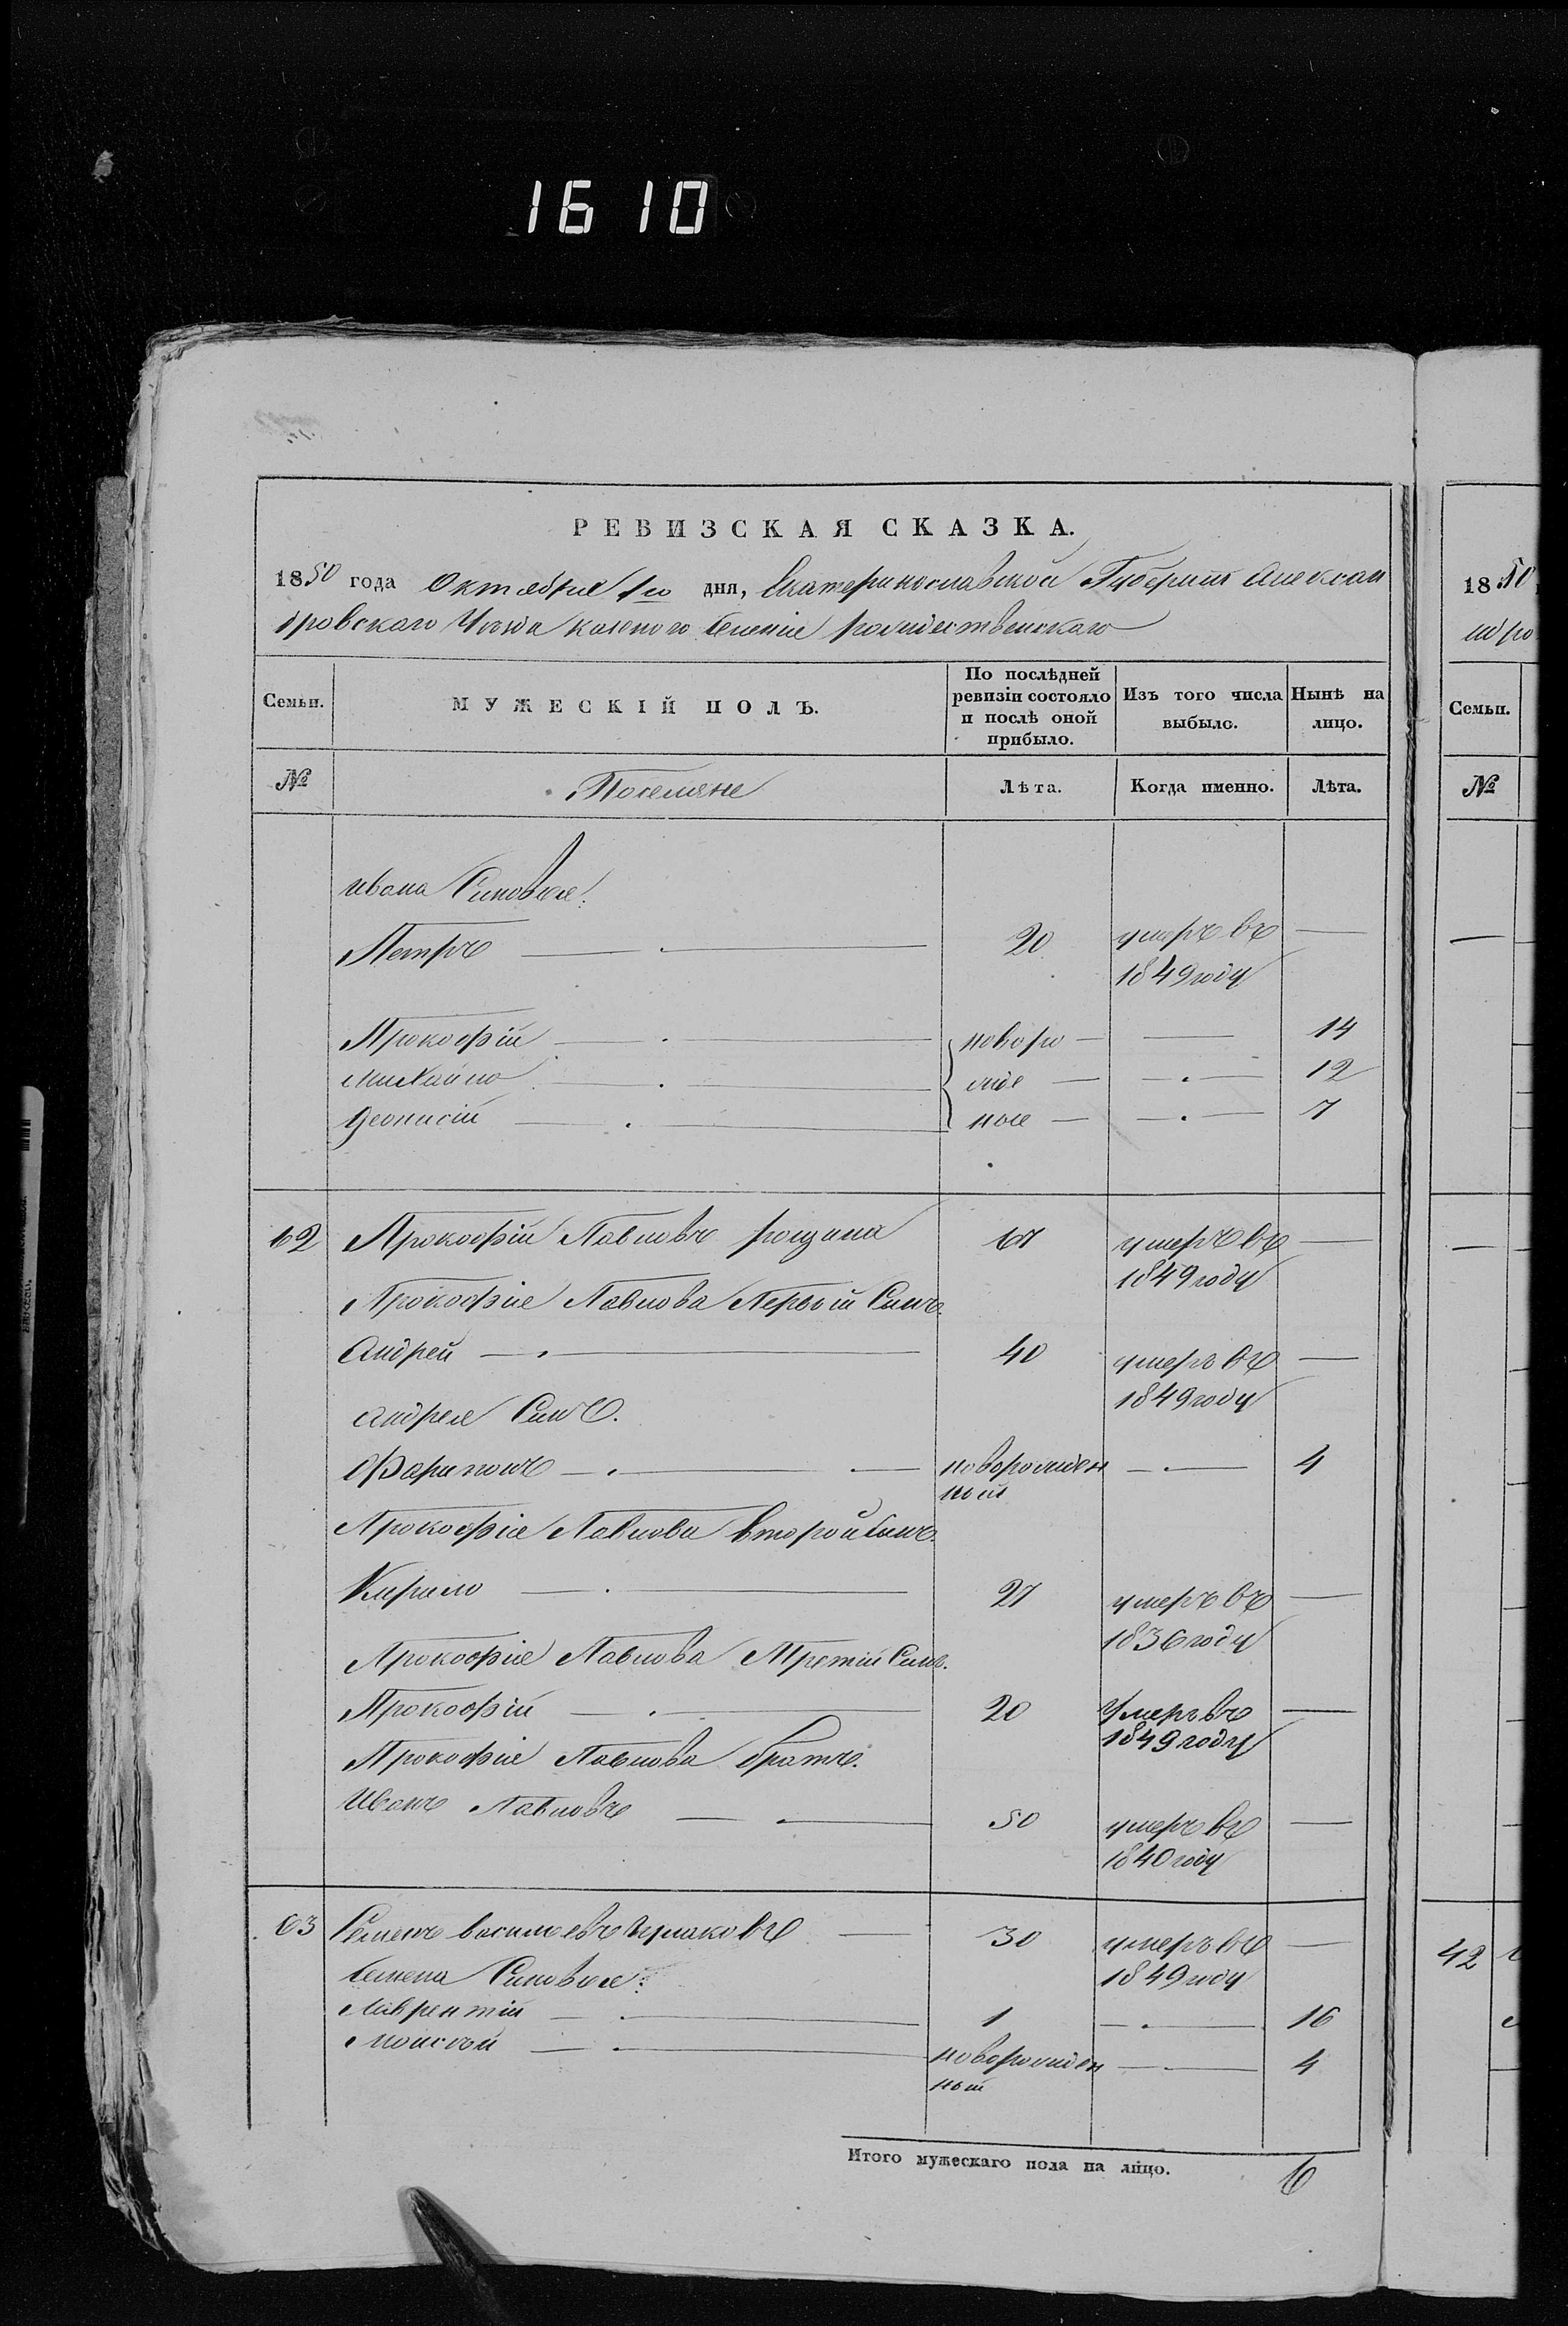 1610
РЕВИЗСКАЯ СКАЗКА.
1850 года Октября 1го дня, Екатеринославской Губернии Алексан
дровскаго Уезда казеного Селения рождественскаго
Семьи. МУЖЕСКІЙ ПОЛЪ. По послѣдней ревизіи состояло и послѣ оной прибыло. Изъ того числа выбыло. Нынѣ на лицо.
№ Поселяне Лѣта. Когда именно. Лѣта.
ивана Сыновья:
Петръ — 20 умеръ въ —
1849 году
Прокофій — новоро — — 14
Михайло — жде — — 12
Деонисій — ные — — 7
62 Прокофій Павловъ рощина 67 умеръ въ —
1849 году
Прокофія Павлова Первый Сынъ.
Андрей — 40 умеръ въ —
1849 году
андрея Сынъ.
Фарипонъ — новорожден — 4
ный
Прокофія Павлова второй сынъ.
Кирило — 27 умеръ въ —
1836 году
Прокофія Павлова Третій Сынъ.
Прокофій — 20 Умеръ въ —
1849 году
Прокофія Павлова братъ.
Иванъ Павловъ — 50 умеръ въ —
1840 году
63 Семенъ васильевъ — 30 умеръ въ —
Семена Сыновья: 1849 году
Лаврентій — 1 — 16
Моисей — новорожден — 4
ный
Итого мужескаго пола на лицо. 6
1850
Семьи.
№
42